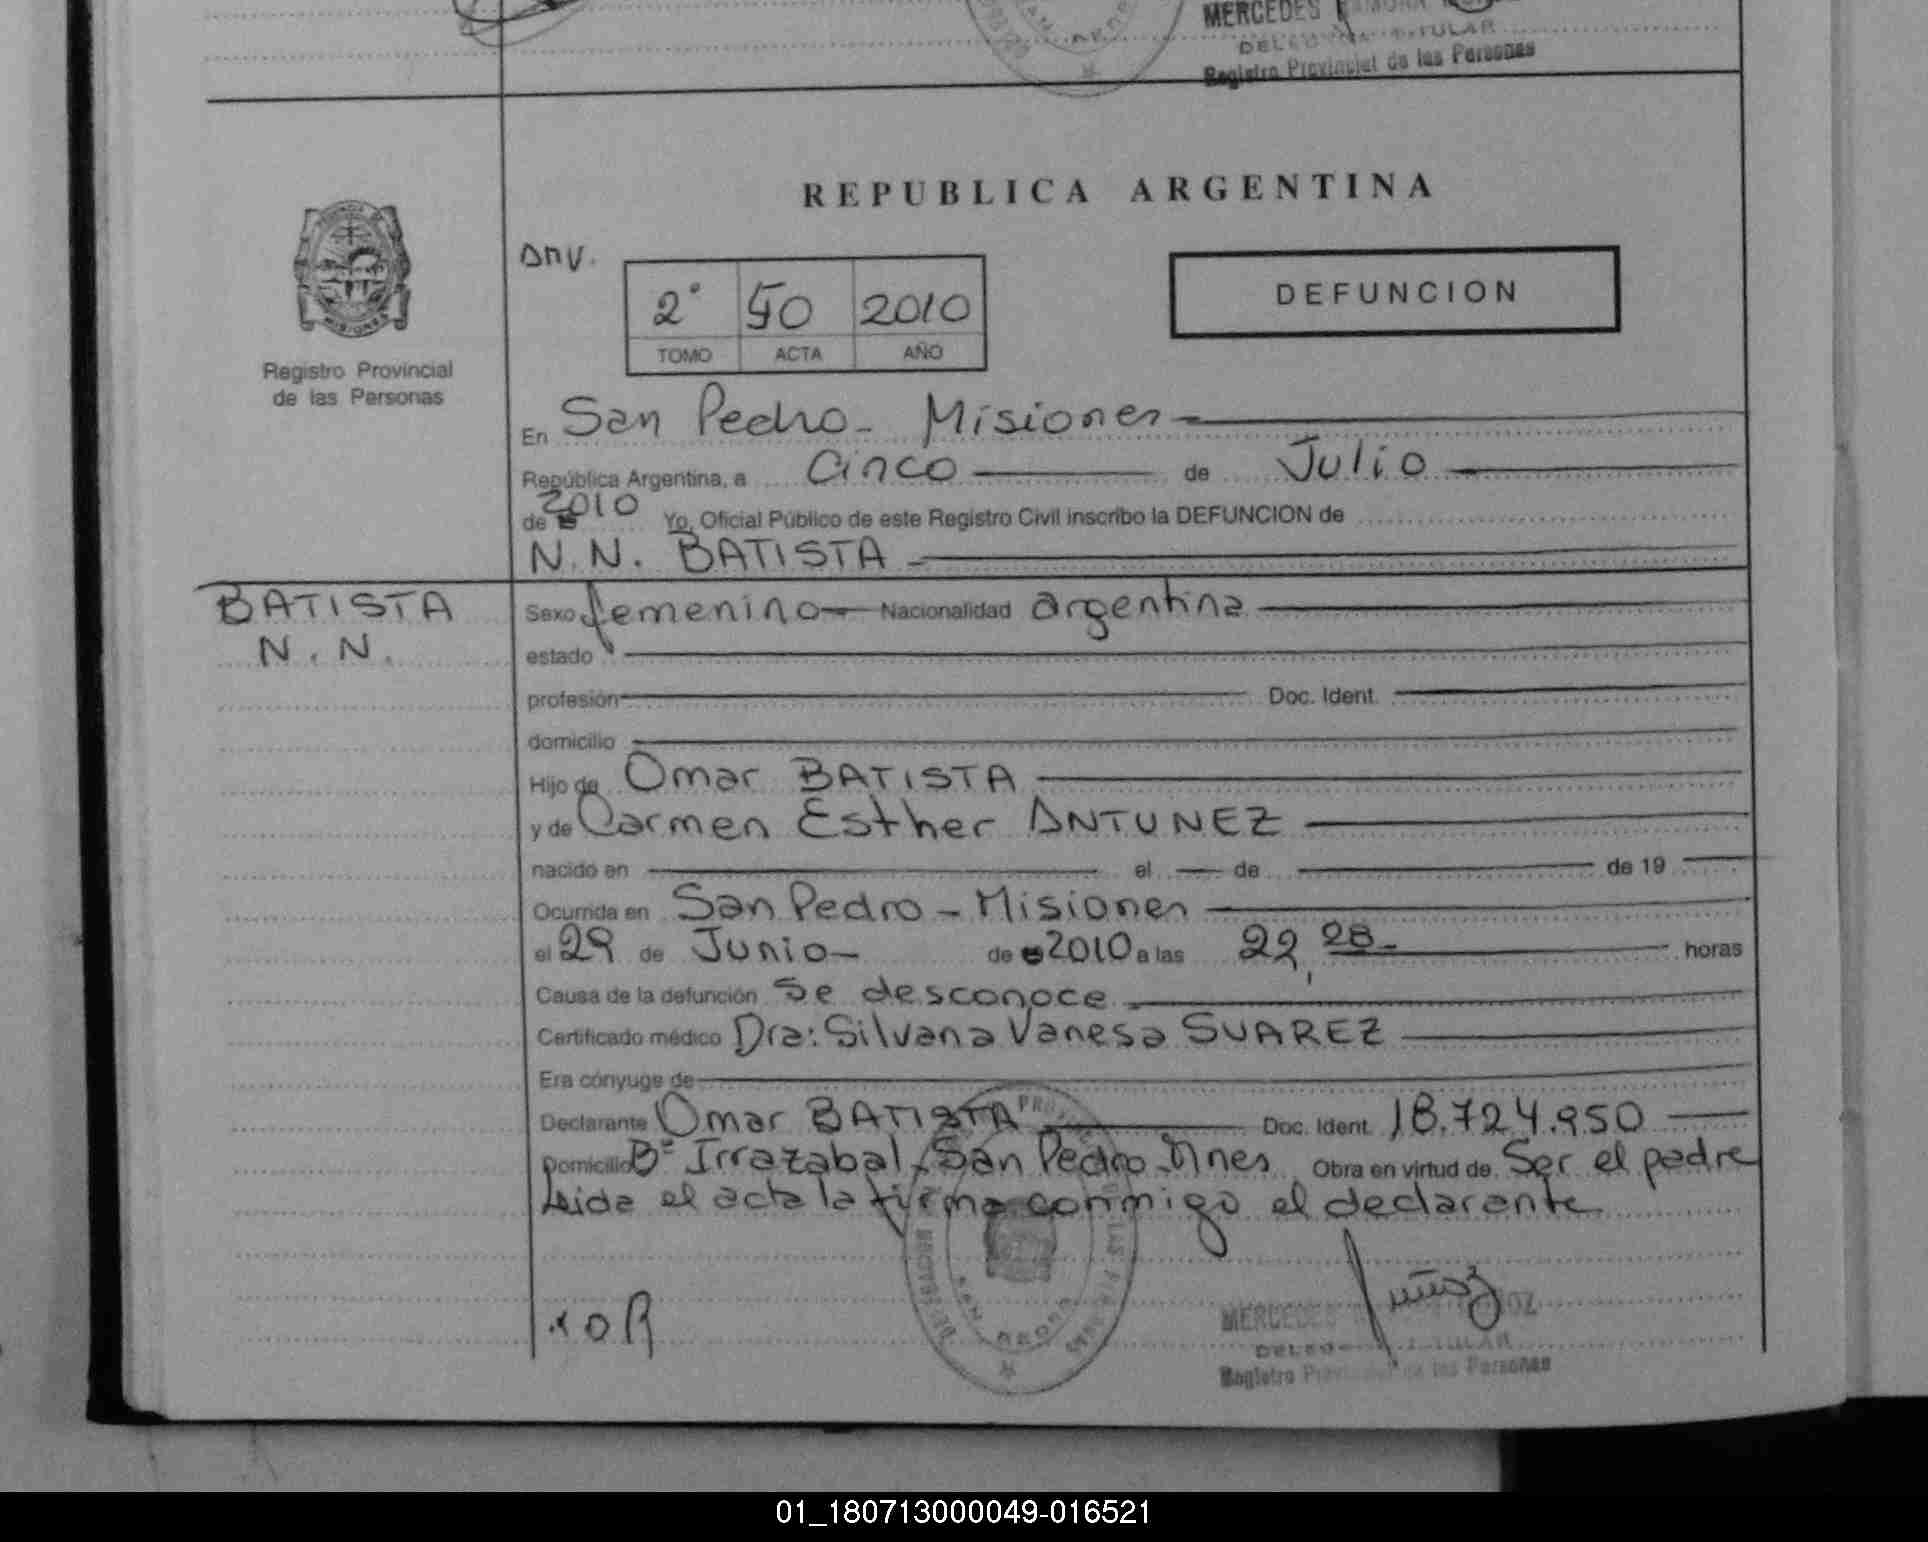 MERCEDES
TITULAR
Registro Provincial de las Personas
REPUBLICA ARGENTINA
MISIONES
Registro Provincial
de las Personas
ANV.
2° 50 2010
TOMO ACTA AÑO
DEFUNCION
En San Pedro - Misiones
República Argentina, a Cinco de Julio
de 2010 Yo, Oficial Público de este Registro Civil inscribo la DEFUNCION de
N. N. BATISTA
BATISTA
N. N.
Sexo femenino Nacionalidad argentina
estado
profesión Doc. Ident.
domicilio
Hijo de Omar BATISTA
y de Carmen Esther ANTUNEZ
nacido en el de de 19
Ocurrida en San Pedro - Misiones
el 29 de Junio de 2010 a las 22,28 horas
Causa de la defunción Se desconoce
Certificado médico Dra: Silvana Vanesa SUAREZ
Era cónyuge de
Declarante Omar BATISTA Doc. Ident. 18.724.950
Domicilio B° Irrazabal, San Pedro Mnes Obra en virtud de Ser el padre
Leida el acta la firma conmigo el declarante
SAN PEDRO
MERCEDES
TITULAR
Registro Provincial de las Personas
01_180713000049-016521